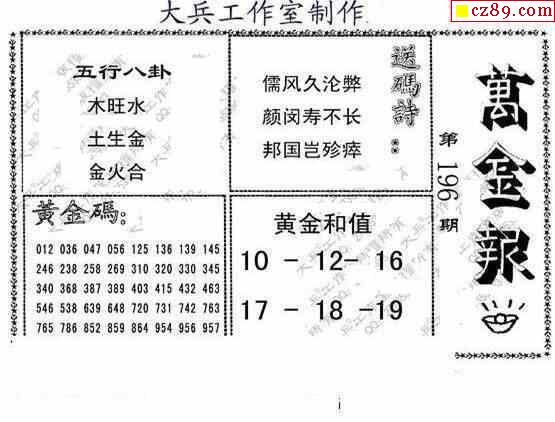 大兵工作室制作
cz89.com
五行八卦
木旺水
土生金
金火合
送碼詩:
儒风久沦弊
颜闵寿不长
邦国岂殄瘁
萬金報
第196期
黃金碼:
012 036 047 056 125 136 139 145
246 238 258 269 310 320 330 345
340 368 387 389 403 415 432 463
546 538 639 648 720 731 742 763
765 786 852 859 864 954 956 957
黄金和值
10 - 12- 16
17 - 18 -19
i